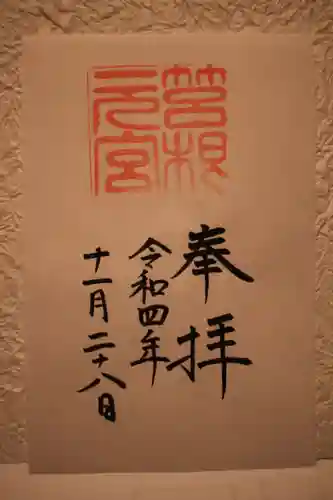 箱根
元宮
奉拝
令和四年
十一月二十八日